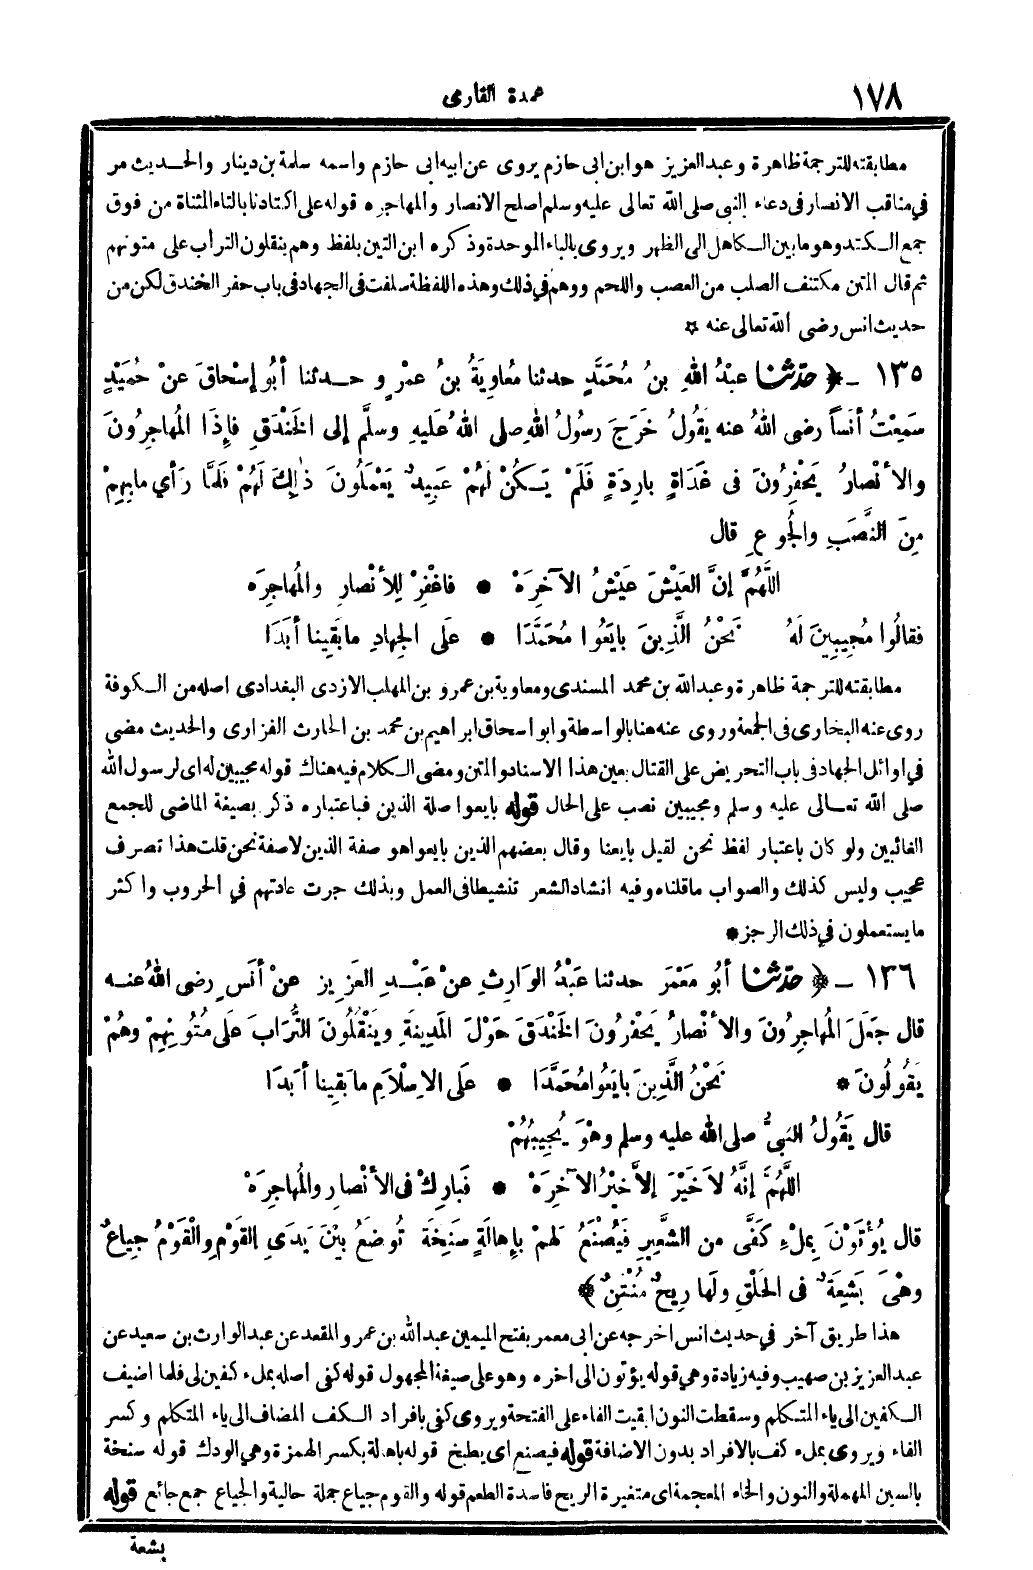 ١٧٨
عمدة القارى
مطابقته للترجمة ظاهرة وعبد العزيز هو ابن ابى حازم يروى عن ابيه ابى حازم واسمه سلمة بن دينار والحديث مر
في مناقب الانصار فى دعاء النبى صلى الله تعالى عليه وسلم اصلح الانصار والمهاجره قوله على اكتادنا بالتاء المثناة من فوق
جمع الكتد وهو ما بين الكاهل الى الظهر ويروى بالباء الموحدة وذكره ابن التين بلفظ وهم ينقلون التراب على متونهم
ثم قال المتن مكتنف الصلب من العصب واللحم ووهم في ذلك وهذه اللفظة سلفت فى الجهاد فى باب حفر الخندق لكن من
حديث انس رضى الله تعالى عنه ☆
١٣٥ ـ ﴿ حدّثنا عبْدُ اللهِ بنُ مُحَمَّدٍ حدثنا مُعاوِيَةُ بنُ عمْرٍ و حدثنا أبُو إسْحاقَ عنْ حُمَيْدٍ
سَمِعْتُ أنَساً رضى اللهُ عنه يَقُولُ خَرَجَ رسُولُ اللهِ صلى اللهُ عَليهِ وسلَّم إلى الخَنْدَقِ فإِذَا المُهاجِرُونَ
والأنْصارُ يَحْفِرُونَ فى غَدَاةٍ بارِدَةٍ فَلَمْ يَكُنْ لَهُمْ عَبِيدٌ يَعْمَلُونَ ذٰلِكَ لَهُمْ فَلَمَّا رَأي ما بِهِمْ
مِنَ النَّصَبِ والجُوعِ قال
اللَّهُمَّ إنَّ العَيْشَ عَيْشُ الآخِرَهْ * فاغْفِرْ لِلأنْصارِ والمُهاجِرَه
فقالُوا مُجِيبِينَ لَهُ نَحْنُ الَّذِينَ بايَعُوا مُحَمَّدَا * عَلَى الجِهادِ ما بَقِينا أبَدَا
مطابقته للترجمة ظاهرة وعبد الله بن محمد المسندى ومعاوية بن عمرو بن المهلب الازدى البغدادى اصله من الكوفة
روى عنه البخارى فى الجمعة وروى عنه هنا بالواسطة وابو اسحاق ابراهيم بن محمد بن الحارث الفزارى والحديث مضى
في اوائل الجهاد فى باب التحريض على القتال بعين هذا الاسناد والمتن ومضى الكلام فيه هناك قوله مجيبين له اى لرسول الله
صلى الله تعالى عليه وسلم ومجيبين نصب على الحال قوله بايعوا صلة الذين فباعتباره ذكر بصيغة الماضى للجمع
الغائبين ولو كان باعتبار لفظ نحن لقيل بايعنا وقال بعضهم الذين بايعوا هو صفة الذين لا صفة نحن قلت هذا تصرف
عجيب وليس كذلك والصواب ما قلناه وفيه انشاد الشعر تنشيطا فى العمل وبذلك جرت عادتهم في الحروب واكثر
ما يستعملون في ذلك الرجز *
١٣٦ ـ ﴿ حدّثنا أبُو مَعْمَرَ حدثنا عَبْدُ الوَارِثِ عنْ عَبْدِ العَزِيزِ عنْ أنَسٍ رضى اللهُ عنه
قال جَعَلَ المُهاجِرُونَ والأنْصارُ يَحْفِرُونَ الخَنْدَقَ حَوْلَ المَدِينَةِ ويَنْقُلُونَ التُّرَابَ عَلَى مُتُونِهِمْ وهُمْ
يَقُولُونَ * نَحْنُ الَّذِينَ بايَعُوا مُحَمَّدَا * عَلَى الاِسْلاَمِ ما بَقِينا أبَدَا
قال يَقُولُ النبيُّ صلى الله عليه وسلم وهْوَ يُجِيبُهُمْ
اللَّهُمَّ إنَّهُ لاَ خَيْرَ إلاَّ خَيْرُ الآخِرَهْ * فَبارِكْ فى الأنْصارِ والمُهاجِرَهْ
قال يُؤْتَوْنَ بِمِلْءِ كَفَّى من الشَّعِيرِ فَيُصْنَعُ لَهُمْ بإِهالَةٍ سَنِخَةٍ تُوضَعُ بيْنَ يَدَيِ القَوْمِ والْقَوْمُ جِياعٌ
وهْيَ بَشِعَةٌ فى الحَلْقِ ولَها رِيحٌ مُنْتِنٌ ﴾
هذا طريق آخر في حديث انس اخرجه عن ابى معمر بفتح الميمين عبد الله بن عمرو المقعد عن عبد الوارث بن سعيد عن
عبد العزيز بن صهيب وفيه زيادة وهي قوله يؤتون الى اخره وهو على صيغة المجهول قوله كفى اصله بملء كفين لى فلما اضيف
الكفين الى ياء المتكلم وسقطت النون ابقيت الفاء على الفتحة ويروى كفى بافراد الكف المضاف الى ياء المتكلم وكسر
الفاء ويروى بملء كف بالافراد بدون الاضافة قوله فيصنع اى يطبخ قوله باهالة بكسر الهمزة وهي الودك قوله سنخة
بالسين المهملة والنون والخاء المعجمة اى متغيرة الريح فاسدة الطعم قوله والقوم جياع جملة حالية والجياع جمع جائع قوله
بشعة